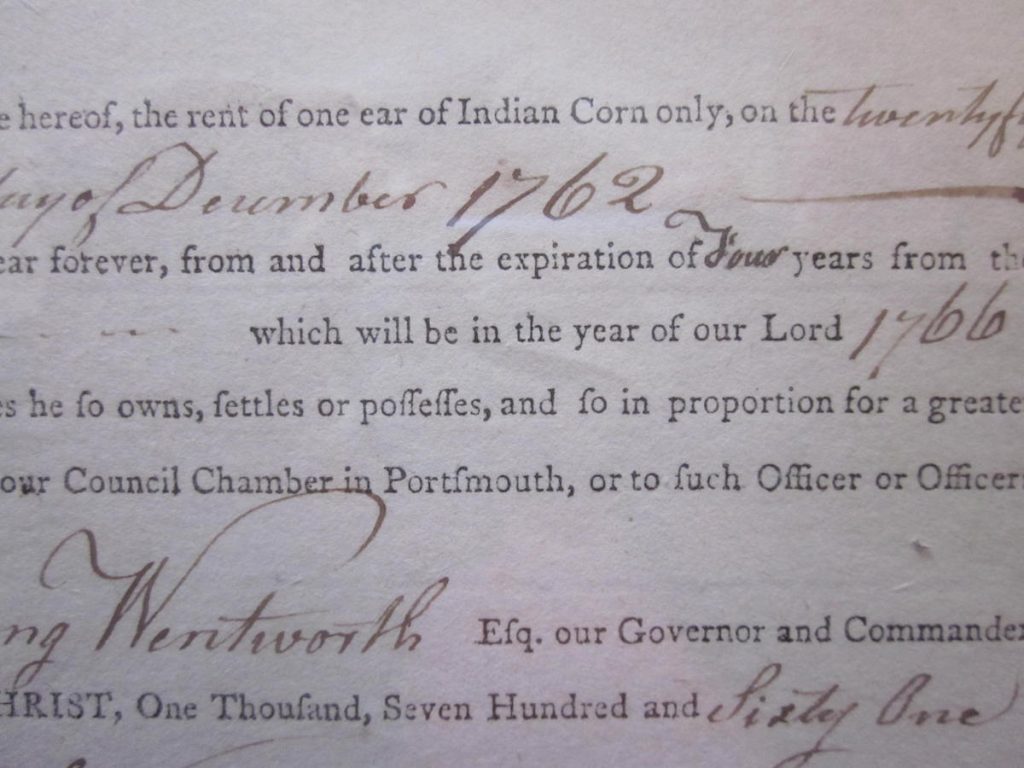 e hereof, the rent of one ear of Indian Corn only, on the twentyf
day of December 1762
ear forever, from and after the expiration of Four years from the
which will be in the year of our Lord 1766
es he ſo owns, ſettles or poſſeſſes, and ſo in proportion for a greate
our Council Chamber in Portſmouth, or to ſuch Officer or Officers
ng Wentworth Eſq. our Governor and Commander
HRIST, One Thouſand, Seven Hundred and Sixty One